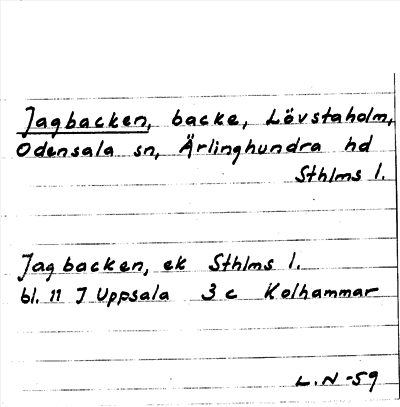 Jagbacken, backe, Lövstaholm,
Odensala sn, Ärlinghundra hd
Sthlms l.
Jagbacken, ek Sthlms l.
bl. 11 I Uppsala 3 c Kolhammar
L.N -59